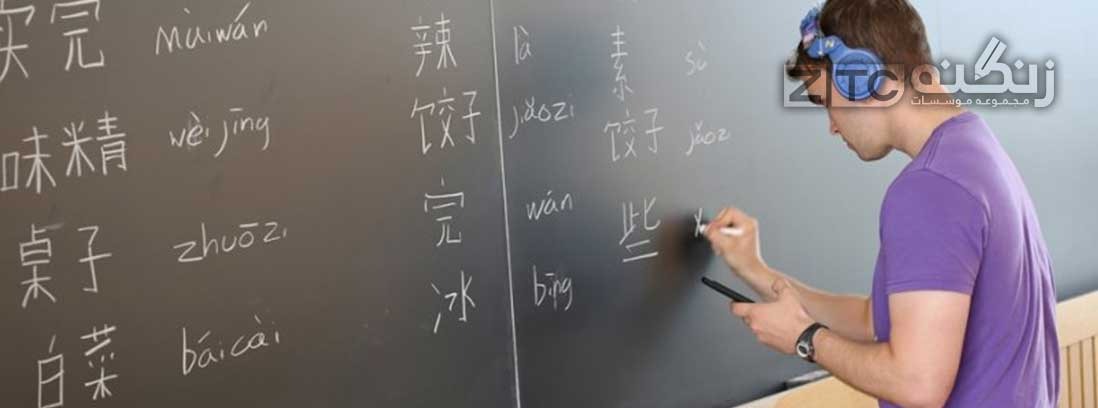 卖完 màiwán
味精 wèijīng
桌子 zhuōzi
白菜 báicài
辣 là
饺子 jiǎozi
完 wán
冰 bīng
素 sù
饺子 jiǎoz
些 x
ZTC زنگنه
مجموعه موسسات